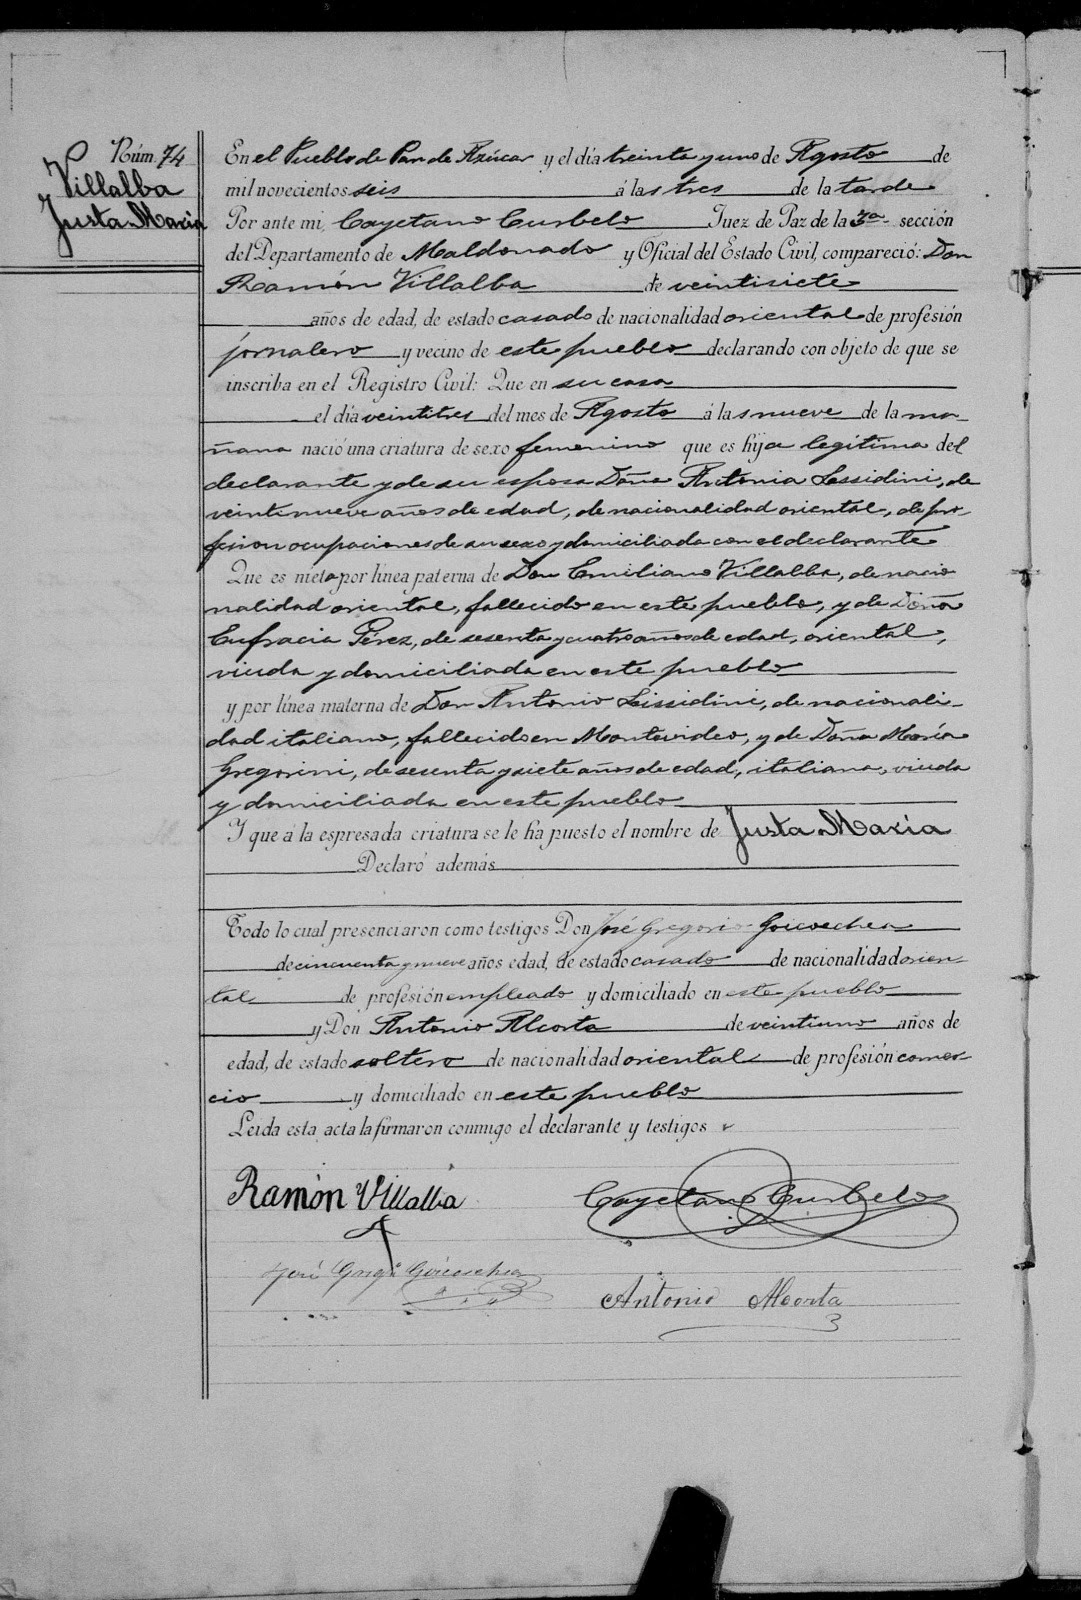 Núm. 74
Villalba
Justa María
En el Pueblo de Pan de Azúcar y el día treinta y uno de Agosto de
mil novecientos seis á las tres de la tarde
Por ante mi, Cayetano Curbelo Juez de Paz de la 3ª sección
del Departamento de Maldonado y Oficial del Estado Civil, compareció: Don
Ramón Villalba de veintisiete
años de edad, de estado casado de nacionalidad oriental de profesión
jornalero y vecino de este pueblo declarando con objeto de que se
inscriba en el Registro Civil: Que en su casa
el día veintitres del mes de Agosto á las nueve de la ma-
ñana nació una criatura de sexo femenino que es hija legítima del
declarante y de su esposa Doña Antonia Lissidini, de
veintinueve años de edad, de nacionalidad oriental, de pro-
fesion ocupaciones de su sexo y domiciliada con el declarante
Que es nieta por línea paterna de Don Emiliano Villalba, de nacio
nalidad oriental, fallecido en este pueblo, y de Doña
Eufracia Pérez, de sesenta y cuatro años de edad, oriental,
viuda y domiciliada en este pueblo
y por línea materna de Don Antonio Lissidini, de nacionali-
dad italiano, fallecido en Montevideo, y de Doña María
Gregorini, de sesenta y siete años de edad, italiana, viuda
y domiciliada en este pueblo
Y que á la espresada criatura se le ha puesto el nombre de Justa María
Declaró además
Todo lo cual presenciaron como testigos Don José Gregorio Goicoechea
de cincuenta y nueve años edad, de estado casado de nacionalidad orien-
tal de profesión empleado y domiciliado en este pueblo
y Don Antonio Alcorta de veintiuno años de
edad, de estado soltero de nacionalidad oriental de profesión comer-
cio y domiciliado en este pueblo
Leida esta acta la firmaron conmigo el declarante y testigos
Ramón Villalba Cayetano Curbelo
José Gregº Goicoechea
Antonio Alcorta